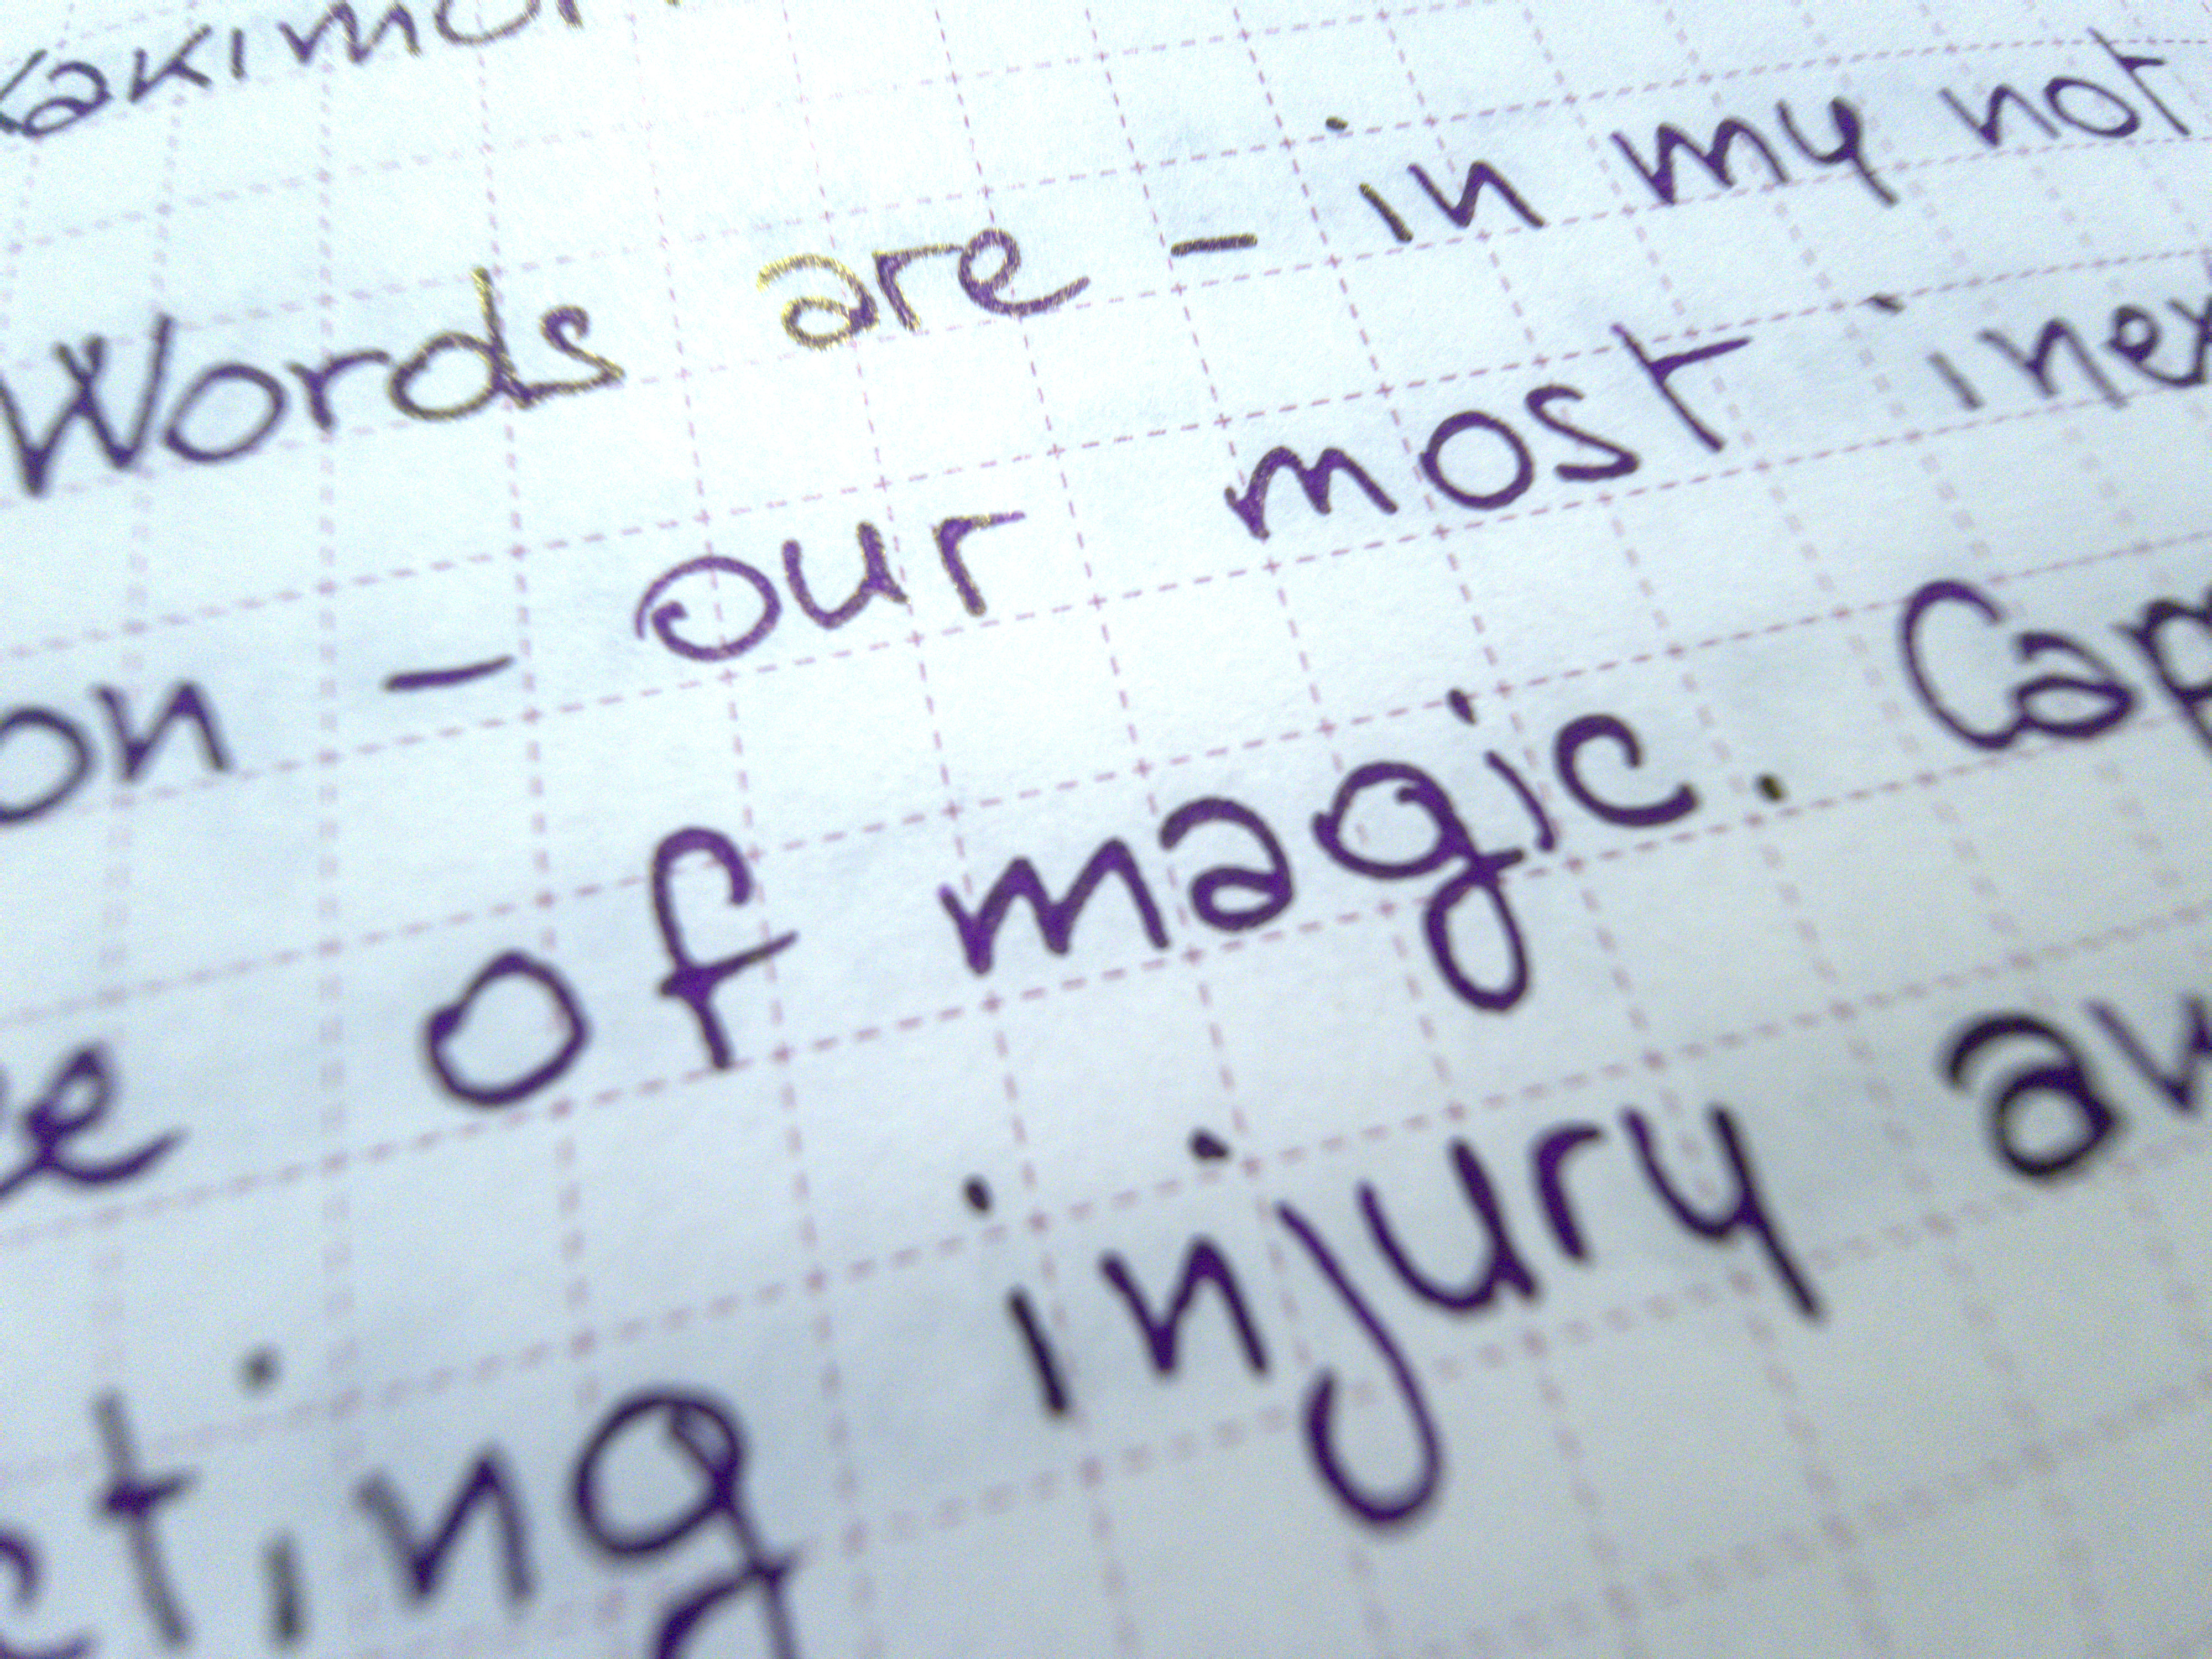 Words are - in my not
on - our most inex
of magic. Cap
cting injury an